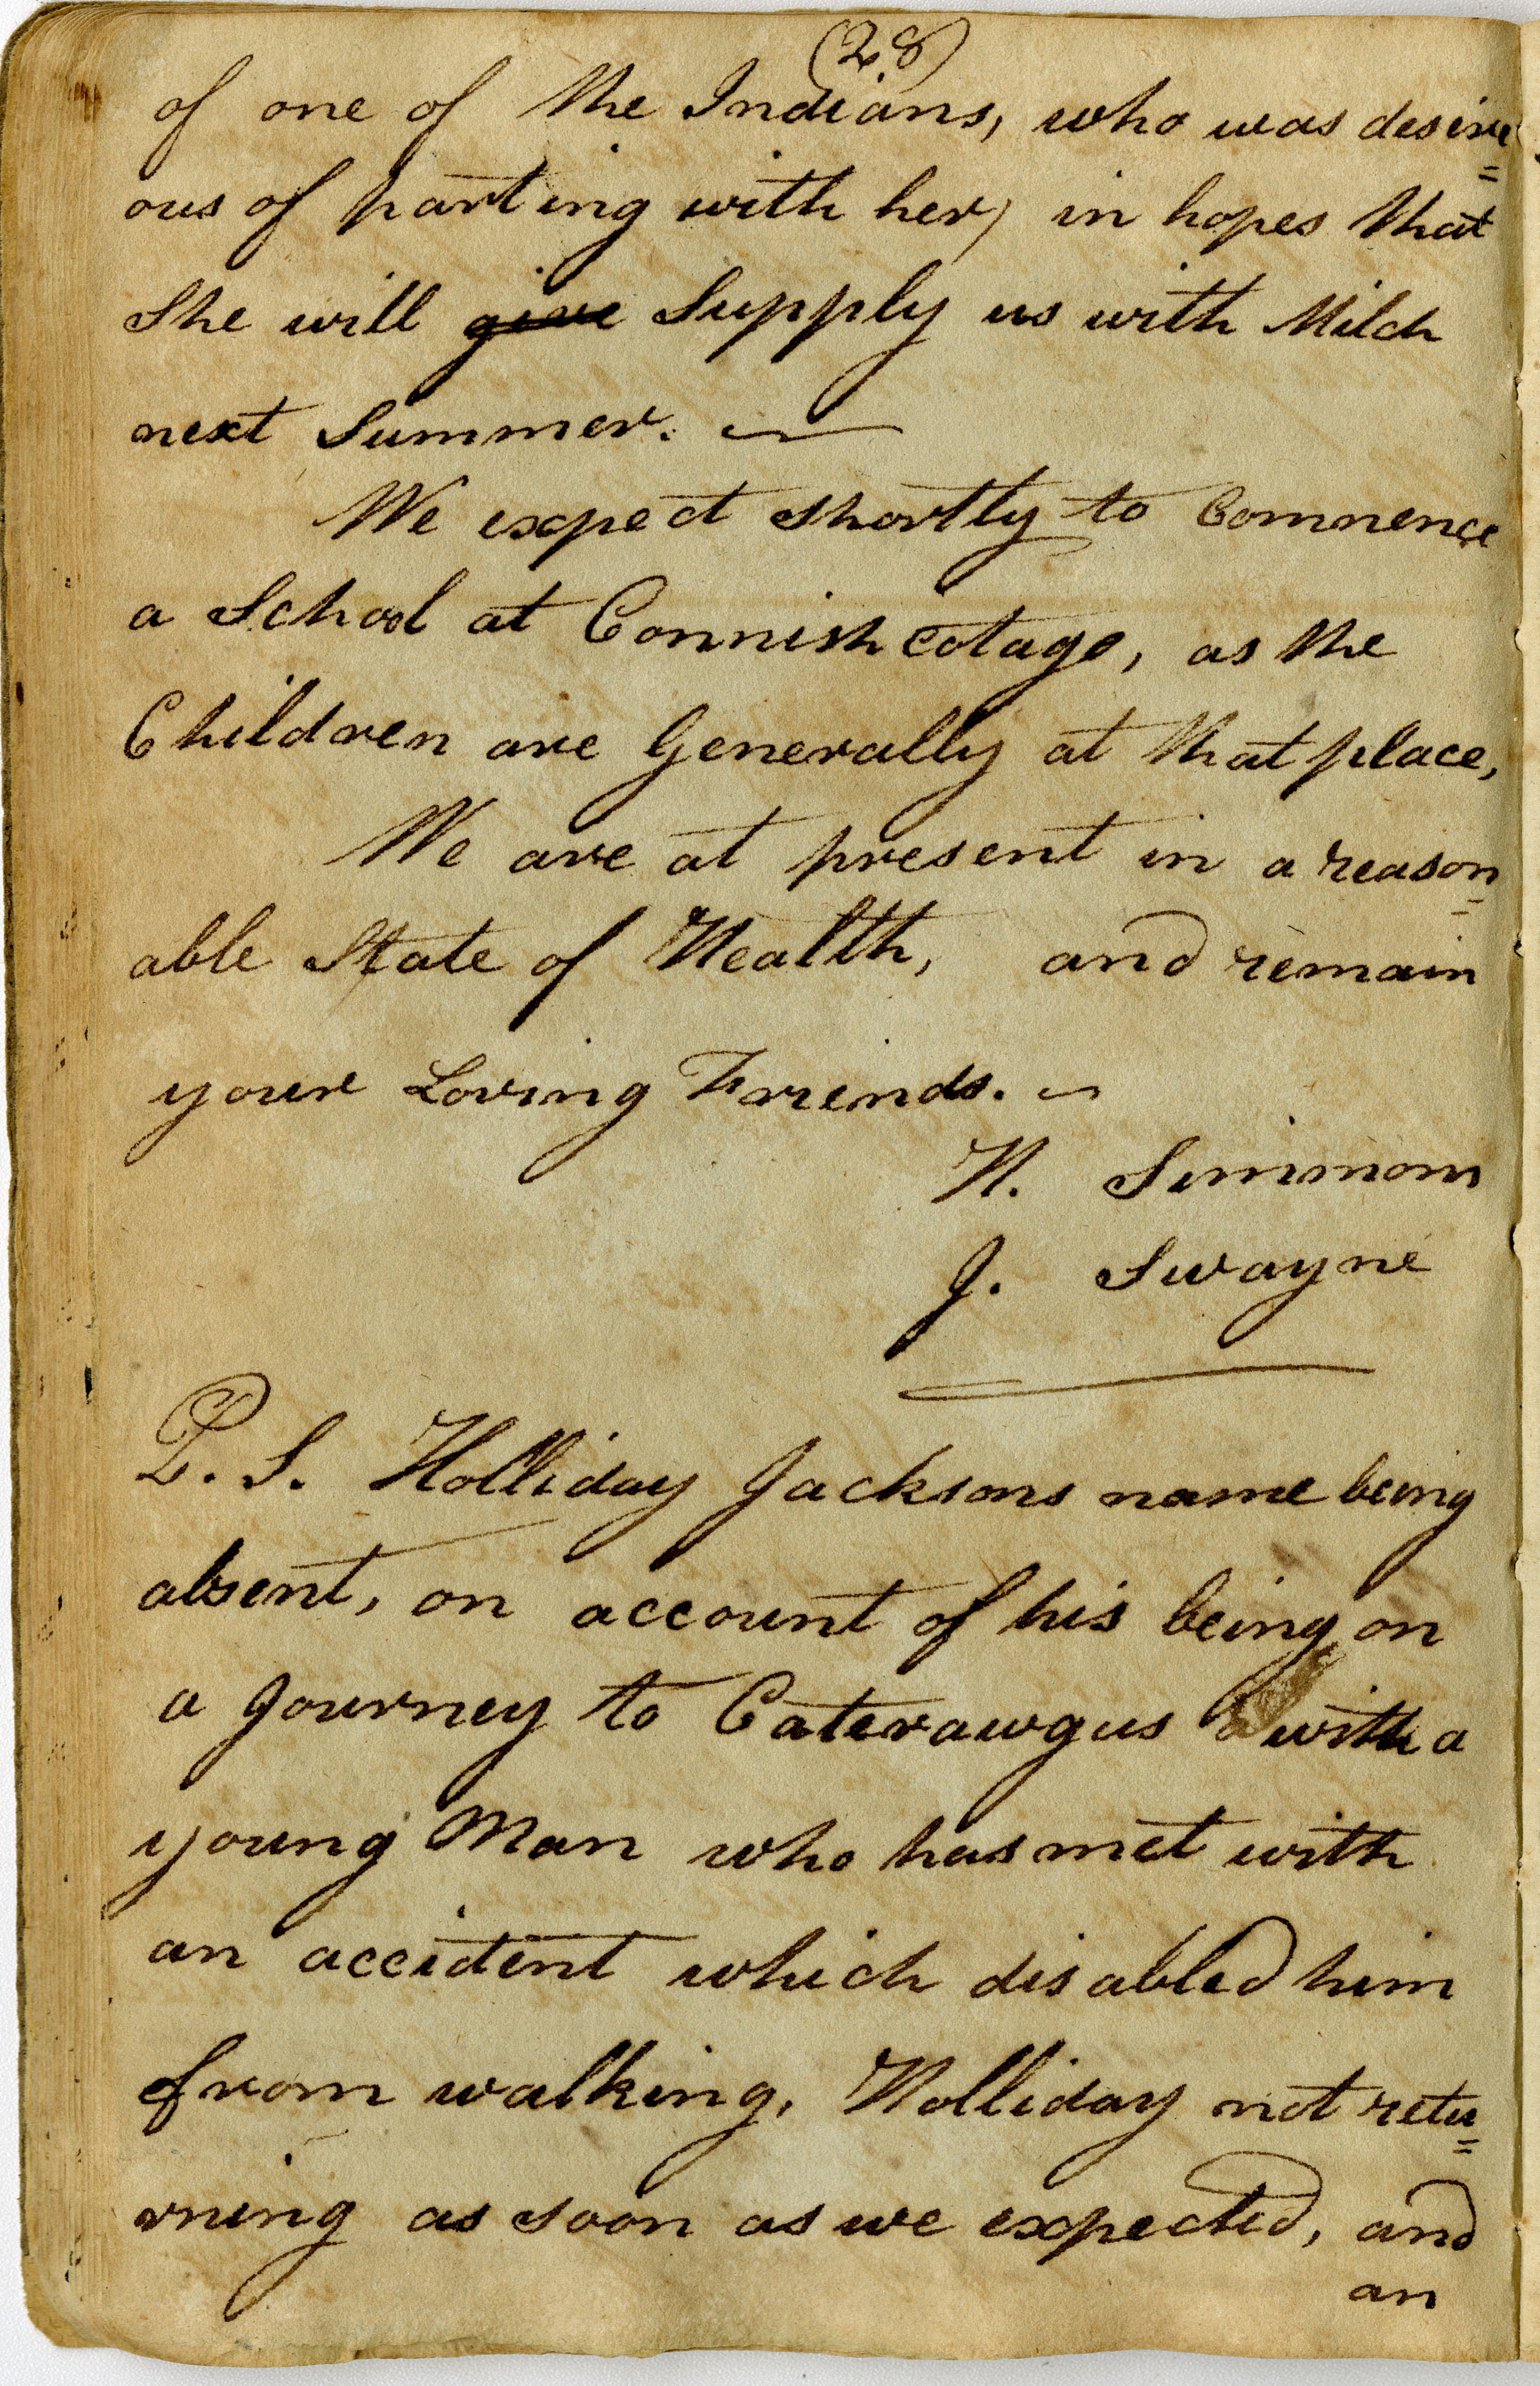 (28)
of one of the Indians, who was desire=
ous of parting with her, in hopes that
She will give Supply us with Milch
next Summer.
We expect shortly to Commence
a School at Connishcotago, as the
Children are Generally at that place,
We are at present in a reason=
able State of Health, and remain
your Loving Freinds.
H. Simmons
J. Swayne
P. S. Holliday Jacksons name being
absent, on account of his being on
a Journey to Caterawgus with a
young Man who has met with
an accident which disabled him
from walking, Holliday not retu=
rning as soon as we expected, and
an